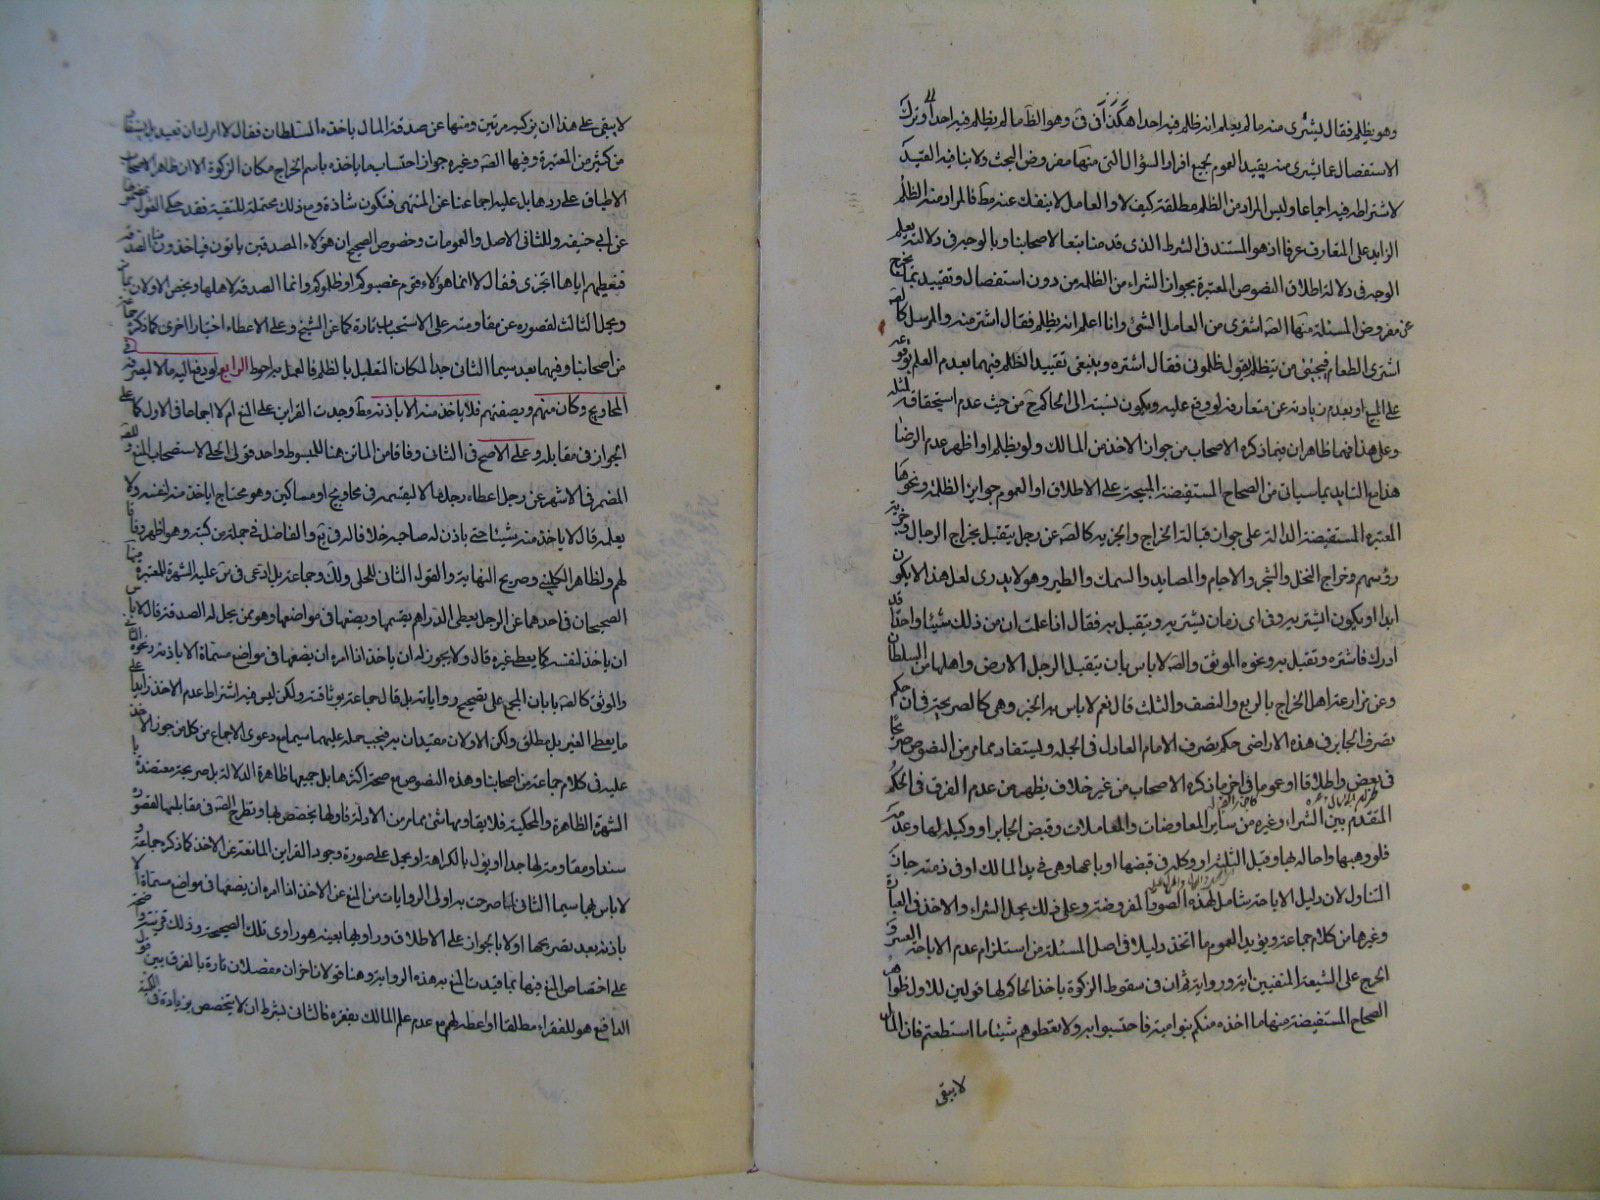 وهو يظلم فقال يشترى منه ما لم يعلم انه ظلم فيه احدا هكذا فى ق وهو الظ ما لم يظلم فيه احدا وترك
الاستفصال عما يشترى منه يفيد العموم لجميع افراد السؤال التى منها مفروض البحث ولا ينافيه التقييد
لاشتراطه فيه اجماعا وليس المراد من الظلم مطلقه كيف لا والعامل لا ينفك عنه مط فالمراد منه الظلم
الزايد على المتعارف عرفا اذ هو المستند فى الشرط الذى قدمنا تبعا لاصحابنا وبالوجه فى دلالته يعلم
الوجه فى دلالة اطلاق النصوص المعتبرة بجواز الشراء من الظلمة من دون استفصال وتقييد بما يخرج
عن مفروض المسئلة منها الصه اشترى من العامل الشئ وانا اعلم انه يظلم فقال اشتر منه والمرسل كالصه
اشترى الطعام فيجيئنى من يتظلم يقول ظلمونى فقال اشتره وينبغى تقييد الظلم فيهما بعدم العلم بوقوعه
على المبيع او بعدم زيادته عن متعارفه لو وقع عليه ويكون نسبته الى الحاكم ح من حيث عدم استحقاقه لمثله
وعلى هذا فهما ظاهران فيما ذكره الاصحاب من جواز الاخذ من المالك ولو يظلم او اظهر عدم الرضا
هذا مع التايد بما سياتى من الصحاح المستفيضة المبيحة على الاطلاق او العموم جوايز الظلمة ونحوها
المعتبره المستفيضة الدالة على جواز قبالة الخراج والجزيه كالصه عن رجل يتقبل بخراج الرجال وجزية
رؤسهم وخراج النخل والشجر والاجام والمصايد والسمك والطير وهو لا يدرى لعل هذا لا يكون
ابدا او يكون ايشتريه وفى اى زمان يشتريه ويتقبل به فقال اذا علمت ان من ذلك شيئا واحدا قد
ادرك فاشتره وتقبل به ونحوه الموثق والصه لا باس بان يتقبل الرجل الارض واهلها من السلطان
وعن مزارعة اهل الخراج بالربع والنصف والثلث قال نعم لا باس به الخبر وهى كالصريحة فى ان حكم
تصرف الجاير فى هذه الاراضى حكم تصرف الامام العادل فى الجملة ويستفاد مما مر من النصوص صريحا
فى بعض واطلاقا او عموما فى اخر ما ذكره الاصحاب من غير خلاف يظهر من عدم الفرق فى الحكم
المتقدم بين الشراء وغيره من ساير المعاوضات والمعاملات وقبض الجاير او وكيله لها وعدمه
فلو وهبها واحاله بها وقبل الثلثة او وكله فى قبضها او باعها وهى فى يد المالك او فى ذمته جاز
التناول لان دليل الاباحة شامل لهذه الصور المفروضة وعلى ذلك يحمل الشراء والاخذ فى العبارة
وغيرها من كلام جماعة ويؤيد العموم ما اتخذ دليلا فى اصل المسئلة من استلزام عدم الاباحة العسر و
الحرج على الشيعة المنفيين اية ورواية ثم ان فى سقوط الزكوة باخذ الحاكم لها قولين للاول ظواهر
الصحاح المستفيضة منها ما اخذه منكم بنو امية فاحتسبوا به ولا تعطوهم شيئا ما استطعتم فان المال
لا يبقى
لا يبقى على هذا ان يزكيه مرتين ومنها عن صدقة المال ياخذه السلطان فقال لا امرك ان تعيد
من كثير من المعتبرة وفيها الصه وغيره جواز احتساب ما ياخذه باسم الخراج مكان الزكوة الا ان ظاهر الاصحاب
الاطباق على ردها بل عليه اجماعنا عن المنتهى فتكون شاذة ومع ذلك محتملة للتقية فقد حكى القول
عن ابى حنيفه وللثانى الاصل والعمومات وخصوص الصحيح ان هؤلاء المصدقين ياتون فياخذون منا الصدقه
فنعطيهم اياها اتجزى فقال لا انما هؤلاء قوم غصبوكم او ظلموكم وانما الصدقة لاهلها ويخص الاولان بما مر
ويحمل الثالث لقصوره عن مقاومته على الاستحباب تارة كما عن الشيخ وعلى الاعطاء اختيارا اخرى كما ذكره جماعة
من اصحابنا وفيهما بعد سيما الثانى جدا لمكان التعليل بالظلم فالعمل به احوط الرابع لو دفع اليه مالا ليصرفه فى
المحاويج وكان منهم وبصفتهم فلا ياخذ منه الا باذنه مط وجدت القراين على المنع ام لا اجماعا فى الاول كما على
الجواز فى مقابله وعلى الاصح فى الثانى وفاقا من الماتن هنا للمبسوط واحد قولى الحلى لاستصحاب المنع و للصه
المضمر فى الاشهر عن رجل اعطاه رجل مالا ليقسمه فى محاويج او مساكين وهو محتاج اياخذ منه لنفسه ولا
يعلمه قال لا ياخذ منه شيئا حتى ياذن له صاحبه خلافا له فى يع والفاضل فى جملة من كتبه وهو اظهر وفاقا
لهم ولظاهر الكلينى وصريح النهاية والقول الثانى للحلى ولك وجماعة بل ادعى فى س عليه الشهرة للمعتبرة منها
الصحيحان فى احدهما عن الرجل يعطى الدراهم يقسمها ويضعها فى مواضعها وهو ممن يحل له الصدقة قال لا باس
ان ياخذ لنفسه كما يعطى غيره قال ولا يجوز له ان ياخذ اذا امره ان يضعها فى مواضع مسماة الا باذنه ونحوه الثانى
والموثق كالصه بابان المجمع على تصحيح رواياته بل قال جماعة بوثاقته ولكن ليس فيه اشتراط عدم الاخذ زايدا على
ما يعطى الغير بل مطلق ولكن الاولان مقيدان به فيجب حمله عليهما سيما مع دعوى الاجماع من كل من جوز الاخذ
عليه فى كلام جماعة من اصحابنا وهذه النصوص مع صحة اكثرها بل جميعها ظاهرة الدلالة بل صريحة معتضدة با
الشهرة الظاهرة والمحكية فلا يقاومها شئ مما مر من الادلة فاولها يخصص بها ويطرح الصه فى مقابلها لقصوره
سندا ومقاومة لها جدا او يؤل بالكراهة او يحمل على صورة وجود القراين المانعة عن الاخذ كما ذكره جماعة و
لا باس بهما سيما الثانى لما صرحت به اولى الروايات من المنع عن الاخذ اذا امره ان يضعها فى مواضع مسماة الا
باذنه بعد تصريحها اولا بالجواز على الاطلاق وراويها بعينه هو راوى تلك الصحيحة وذلك قرينة واضحة
على اختصاص المنع فيها بما قيدت المنع به هذه الرواية وهنا قولان اخران مفصلان تارة بالفرق بين قول
الدافع هو للفقراء مطلقا او اعطه لهم مع علم المالك بفقره كالثانى بشرط ان لا يتخصص بزيادة فى